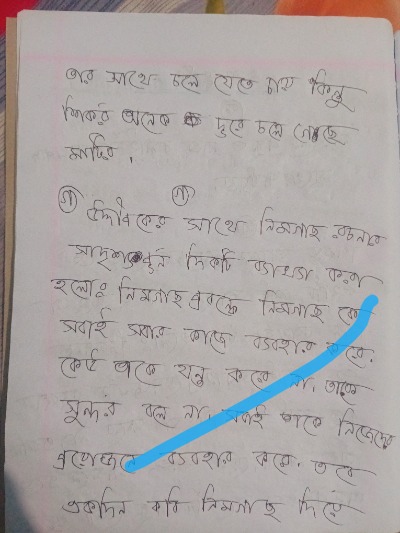 তার সাথে চলে যেতে চায় কিন্তু
শিকড় অনেক দূরে চলে গেছে
মাটির।
গ) গ)
উদ্দীপকের সাথে নিমগাছ রচনার
সাদৃশ্যপূর্ন দিকটি ব্যাখ্যা করা
হলোঃ নিমগাছ প্রবন্ধে নিমগাছ কে
সবাই সবার কাজে ব্যবহার করে।
কেউ তাকে যত্ন করে না। তাকে
সুন্দর বলে না। সবাই তাকে নিজেদের
প্রয়োজনে ব্যবহার করে। তবে
একদিন কবি নিমগাছ দিয়ে